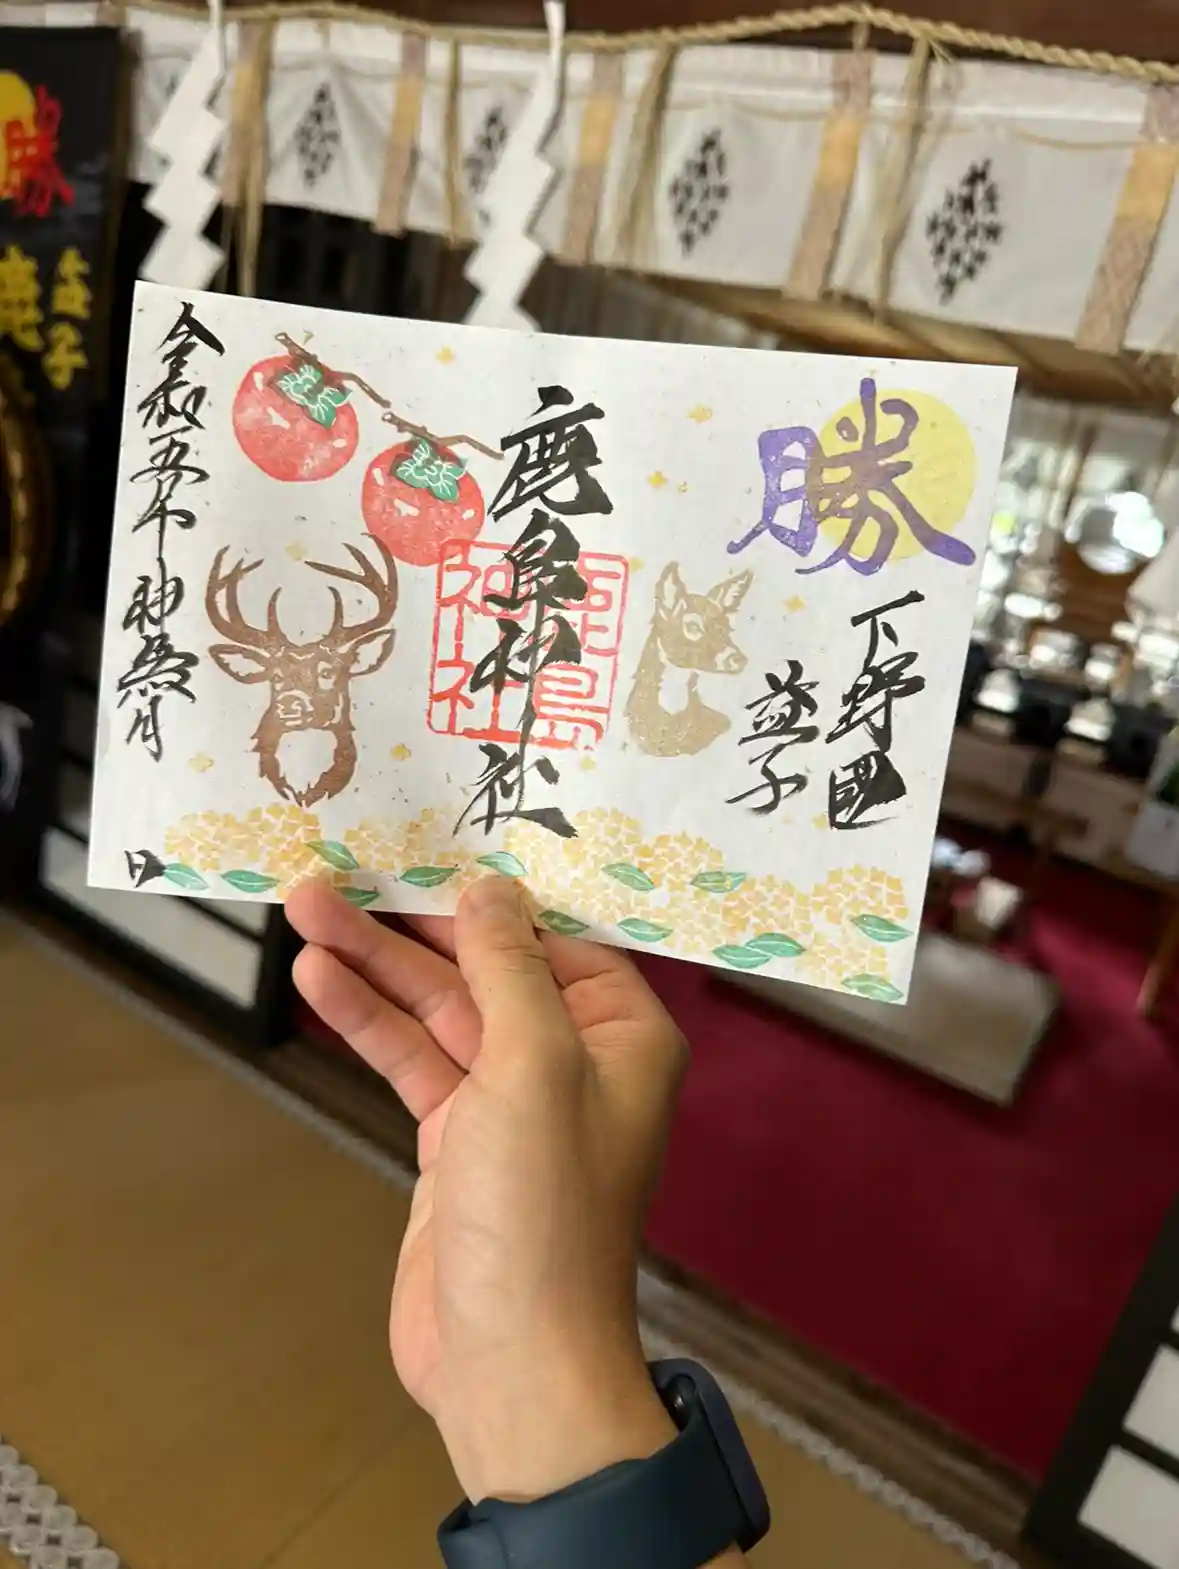 勝
下野國
益子
鹿島神社
鹿島
神社
令和五年神無月
日
勝
益子
鹿